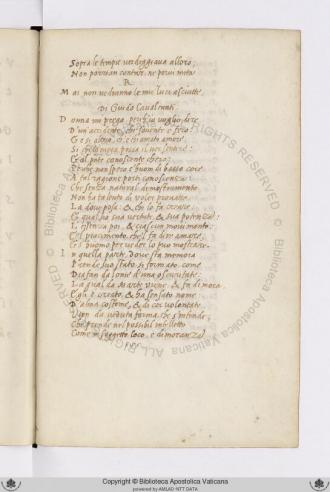 Sopra le tempie verdeggiava alloro,
Non porrian contar, ne porvi meta
R
Mai non vedranno le mie luci asciutte
Di Guido Cavalcanti.
Donna mi prega perch'io voglio dire
D'un accidente, che sovente e fero:
amore:
Si chi lo nega possa il ver sentire:
conoscente chero;
Perche non spero c'huom di basso core
A tal ragione porti conoscenza:
Che senza natural dimostramento
Non ha talento di voler provare
La dove posa; & chi lo fa creare:
Et qual sia sua vertute, & sua potenza:
L'essenza poi, & ciascun movimento:
E'l piacimento, che'l fa dire amare,
E s'huomo per veder lo puo mostrare.
In quella parte, dove sta memoria
Prende suo stato, si formato, come
Diafan da lome d'una oscuritate;
La qual da Marte viene, & fa dimora.
Egli e creato, & ha sensato nome
D'alma costume, & di cor volontate
Vien da veduta forma, che s'intende,
Che prende nel possibile intelletto
Come in suggetto loco, e dimoranza
Copyright © Biblioteca Apostolica Vaticana
powered by AMLAD NTT DATA
ALL RIGHTS RESERVED © Biblioteca Apostolica Vaticana